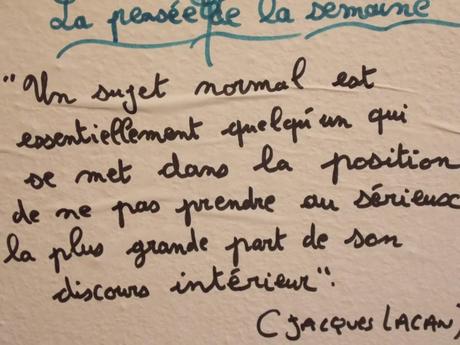 La pensée de la semaine
"Un sujet normal est
essentiellement quelqu'un qui
se met dans la position
de ne pas prendre au sérieux
la plus grande part de son
discours intérieur".
(JACQUES LACAN)